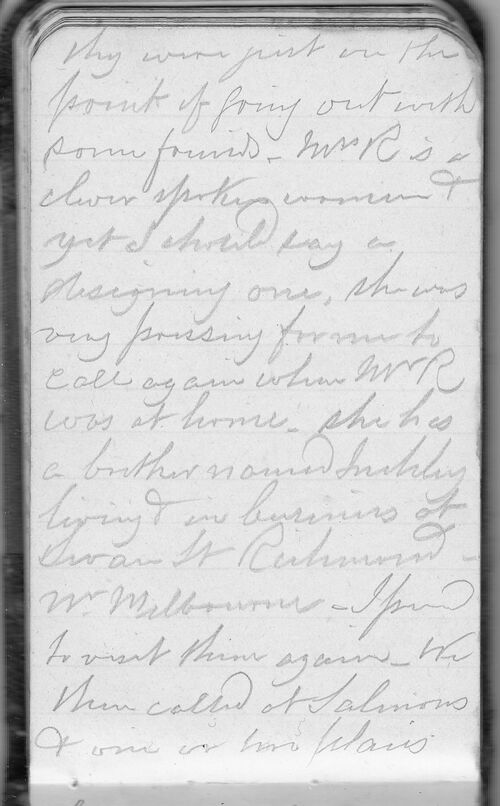 they were just on the
point of going out with
some friends - Mrs R is a
clever spoken woman &
yet I should say a
designing one, she was
very pressing for me to
call again when Mr R
was at home - she has
a brother named
living & in business at
Swan St Richmond -
Nr Melbourne -
to visit them again - We
then called at Salmons
& one or two places